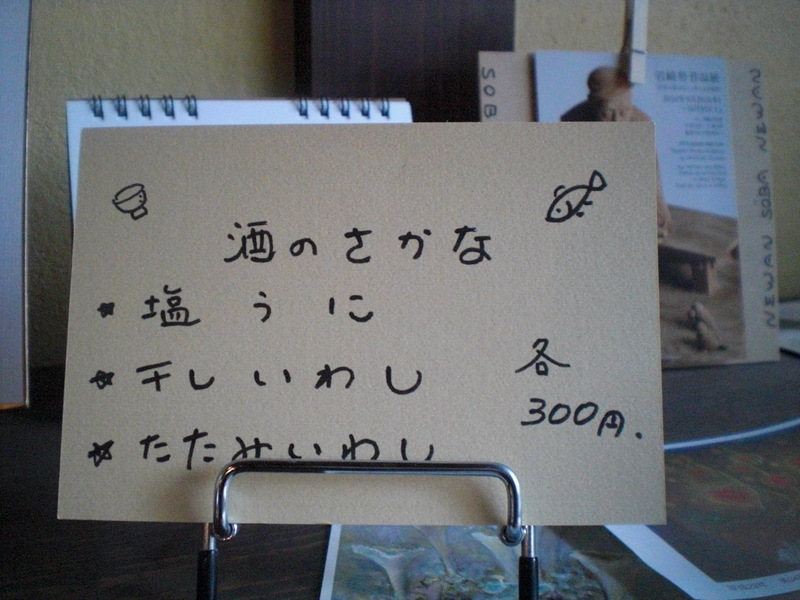 酒のさかな
★ 塩うに
★ 干しいわし
★ たたみいわし
各
300円.
SOB
NEWAN SOBA NEWAN